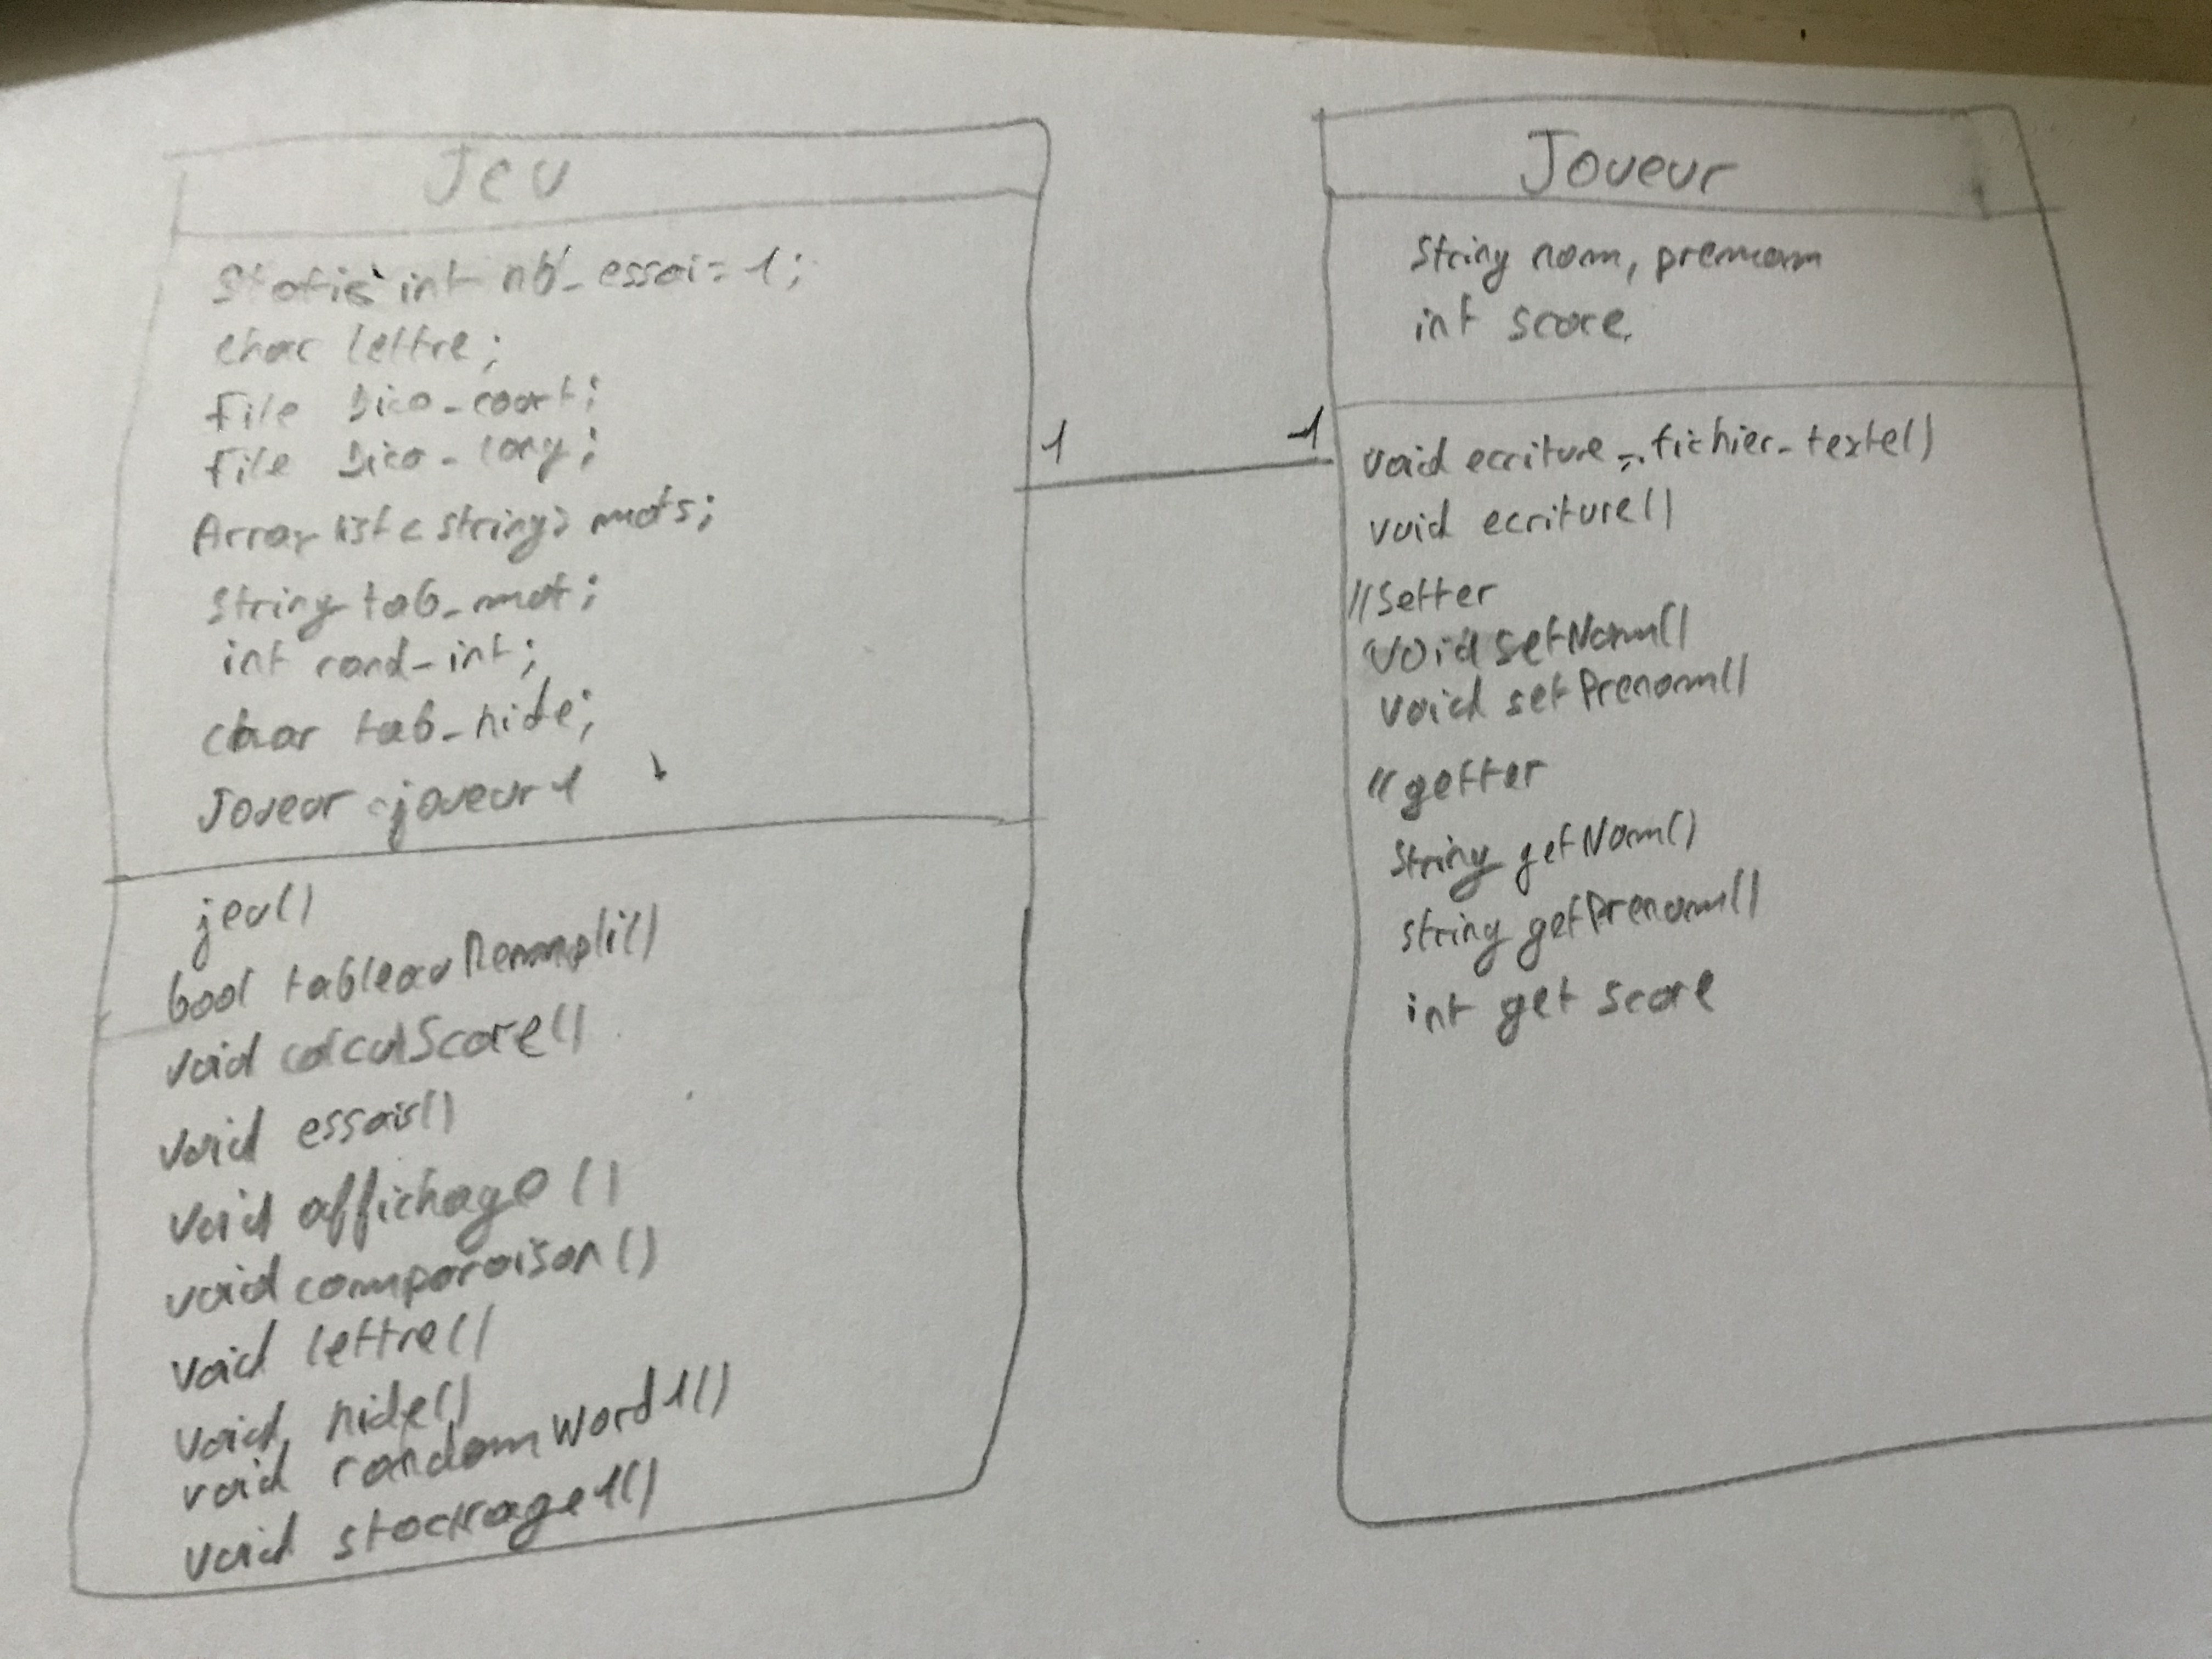 Jeu
static int nb_essai = 1;
char lettre;
File Dico_court;
File Dico_long;
Array liste <string> mots;
string tab_mot;
int rand_int;
char tab_hide;
Joueur joueur1
jeu()
bool tableauRempli()
void calculScore()
void essais()
void affichage()
void comparaison()
void lettre()
void hide()
void randomWord1()
void stockage1()
1
1
Joueur
string nom, prenom
int score
void ecriture_fichier_texte()
void ecriture()
//setter
void setNom()
void setPrenom()
//getter
string getNom()
string getPrenom()
int get score